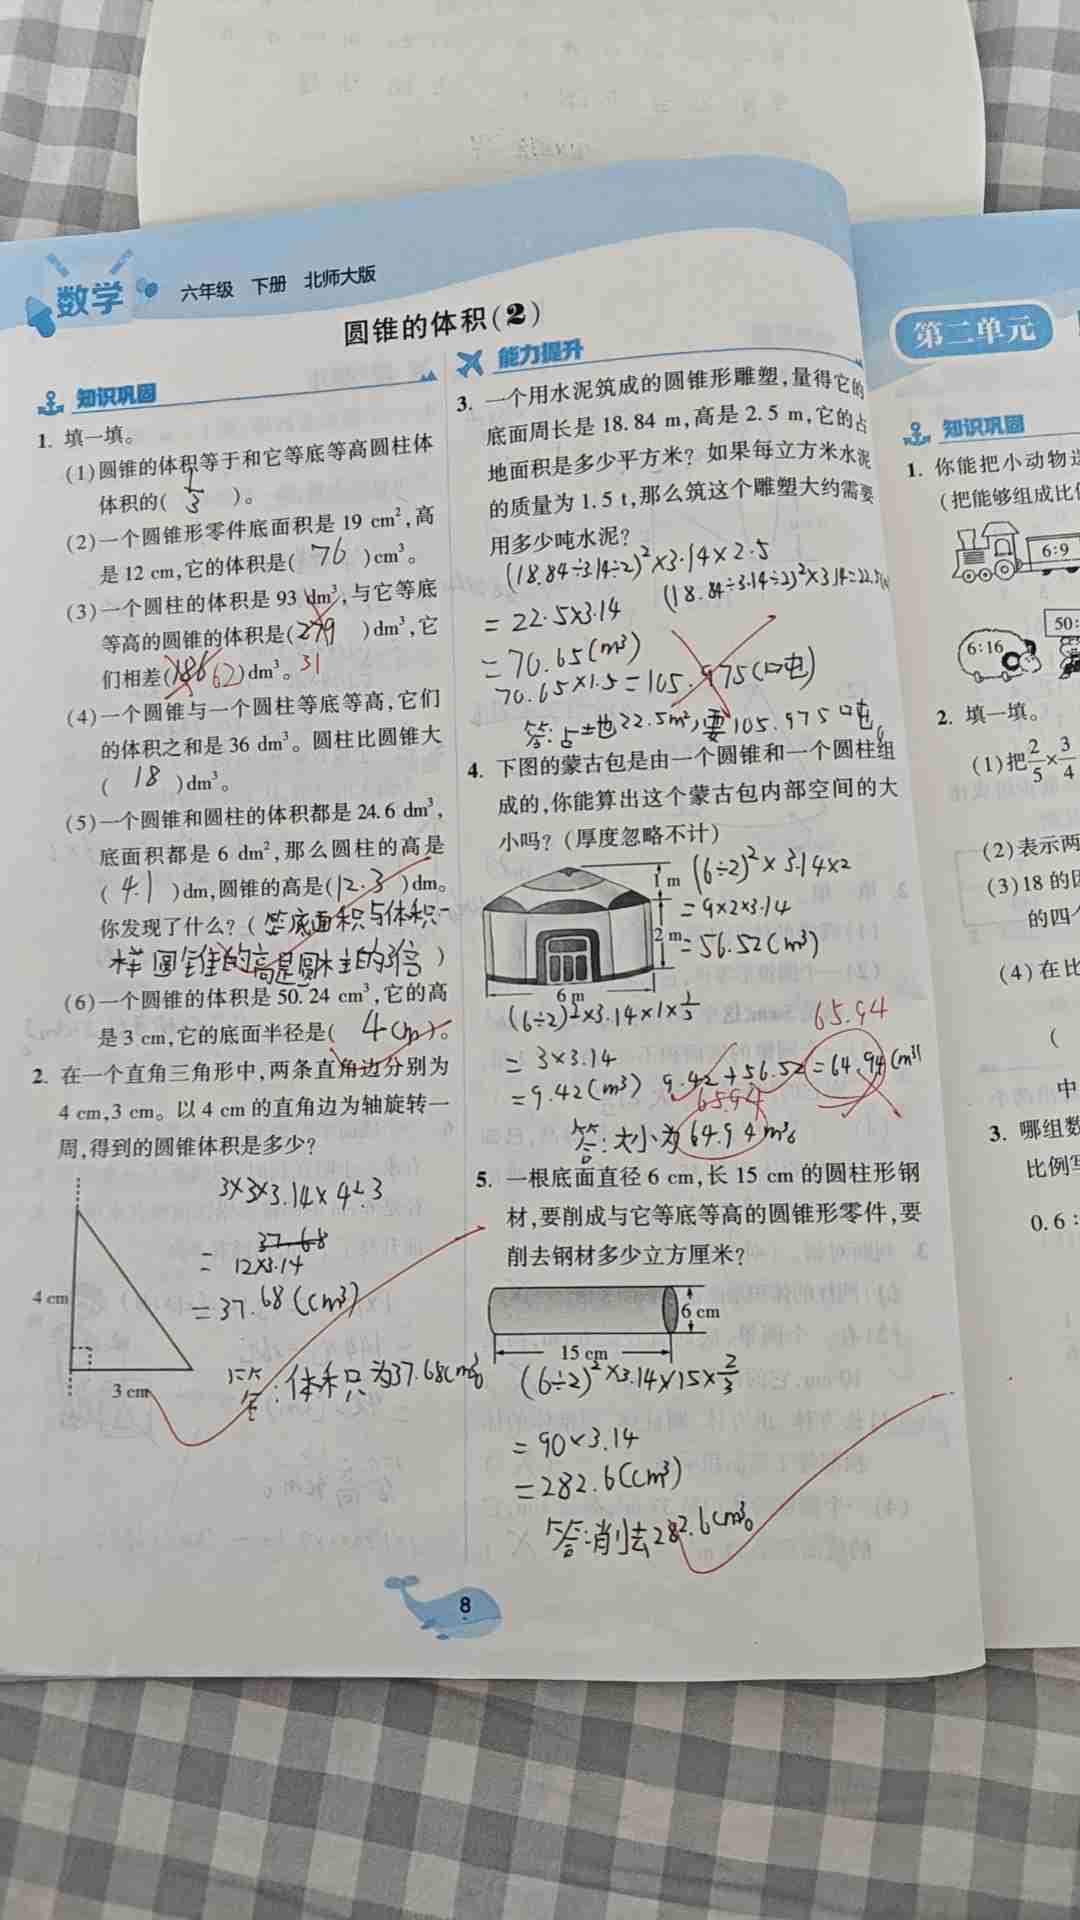 数学
六年级 下册 北师大版
圆锥的体积(2)
知识巩固
1. 填一填。
(1)圆锥的体积等于和它等底等高圆柱体
体积的( 1/3 )。
(2)一个圆锥形零件底面积是 19 cm²,高
是 12 cm,它的体积是( 76 )cm³。
(3)一个圆柱的体积是 93 dm³,与它等底
等高的圆锥的体积是( 279 )dm³,它
31
们相差( 186 62)dm³。
(4)一个圆锥与一个圆柱等底等高,它们
的体积之和是 36 dm³。圆柱比圆锥大
( 18 )dm³。
(5)一个圆锥和圆柱的体积都是 24.6 dm³,
底面积都是 6 dm²,那么圆柱的高是
( 4.1 )dm,圆锥的高是( 12.3 )dm。
你发现了什么?( 底面积与体积一
样 圆锥的高是圆柱的3倍 )
(6)一个圆锥的体积是 50.24 cm³,它的高
是 3 cm,它的底面半径是( 4cm )。
2. 在一个直角三角形中,两条直角边分别为
4 cm,3 cm。以 4 cm 的直角边为轴旋转一
周,得到的圆锥体积是多少?
3×3×3.14×4÷3
37.68
= 12×3.14
=37.68(cm³)
答:体积为37.68cm³。
4 cm
3 cm
能力提升
3. 一个用水泥筑成的圆锥形雕塑,量得它的
底面周长是 18.84 m,高是 2.5 m,它的占
地面积是多少平方米? 如果每立方米水泥
的质量为 1.5 t,那么筑这个雕塑大约需要
用多少吨水泥?
(18.84÷3.14÷2)²×3.14×2.5
(18.84÷3.14÷2)²×3.14=22.5
= 22.5×3.14
=70.65(m³)
70.65×1.5=105.975(吨)
答:占地22.5m²,要105.975吨。
4. 下图的蒙古包是由一个圆锥和一个圆柱组
成的,你能算出这个蒙古包内部空间的大
小吗? (厚度忽略不计)
1 m
2 m
6 m
(6÷2)²×3.14×2
=9×2×3.14
=56.52(m³)
(6÷2)²×3.14×1×1/3
= 3×3.14
=9.42(m³)
65.94
9.42+56.52=64.94(m³)
65.94
答:大小为64.94m³。
5. 一根底面直径 6 cm,长 15 cm 的圆柱形钢
材,要削成与它等底等高的圆锥形零件,要
削去钢材多少立方厘米?
6 cm
15 cm
(6÷2)²×3.14×15×2/3
=90×3.14
=282.6(cm³)
答:削去282.6cm³。
8
第二单元
知识巩固
1. 你能把小动物送
(把能够组成比例
6:9
50:
6:16
2. 填一填。
(1)把2/5×3/4
(2)表示两
(3)18 的因
的四个
(4)在比
(
中
3. 哪组数
比例写
0.6: